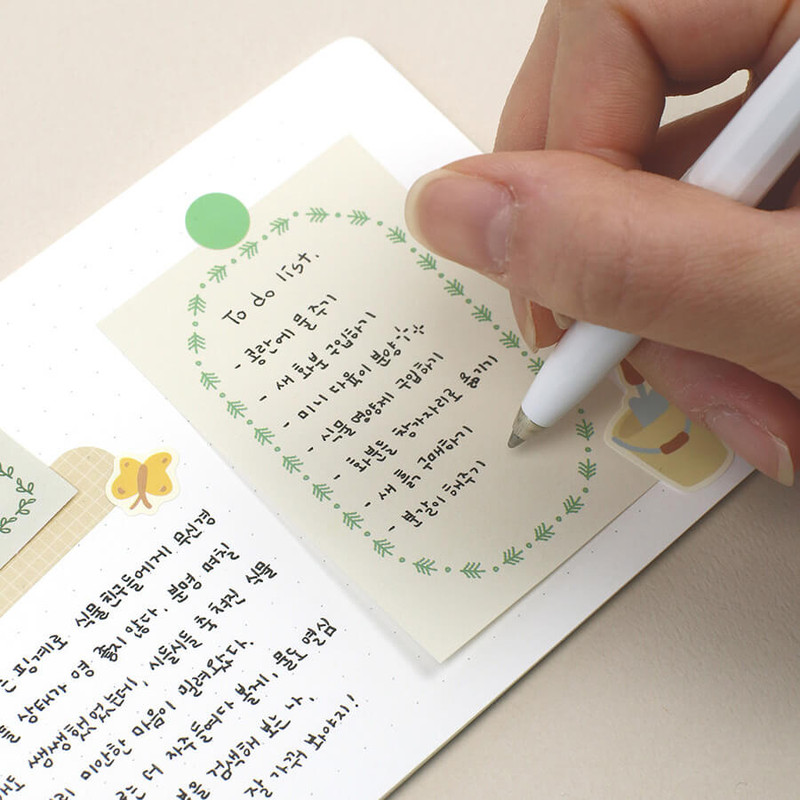 To do list.
- 호란에 물 주기
- 새 화분 구입하기
- 미니 다육이 분양
- 식물 영양제 구입하기
- 화분들 창가자리로 옮기기
- 새 흙 구매하기
- 분갈이 해주기
핑계로 식물친구들에게 무신경
상태가 영 좋지 않다. 분명 며칠
쌩쌩했었는데, 시들시들 축 처진 식물
미안한 마음이 밀려왔다.
더 자주 들여다 볼게, 물도 열심
검색해 보는 나.
잘 가꿔 보아야지!